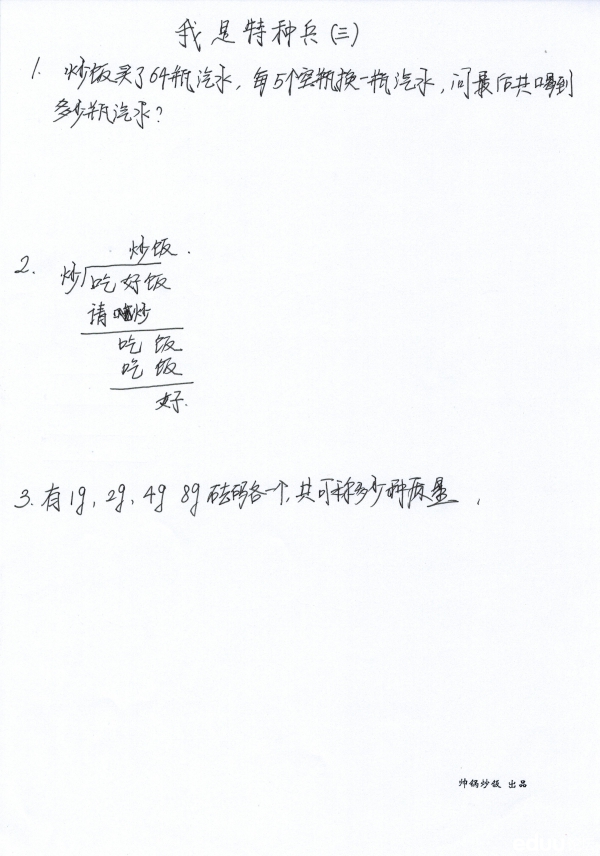 我是特种兵(三)
1. 炒饭买了64瓶汽水,每5个空瓶换一瓶汽水,问最后共喝到
多少瓶汽水?
2.
炒饭.
炒 吃好饭
请 炒
吃饭
吃饭
好.
3. 有1g, 2g, 4g 8g砝码各一个,共可称多少种质量.
帅锅炒饭 出品
eduu